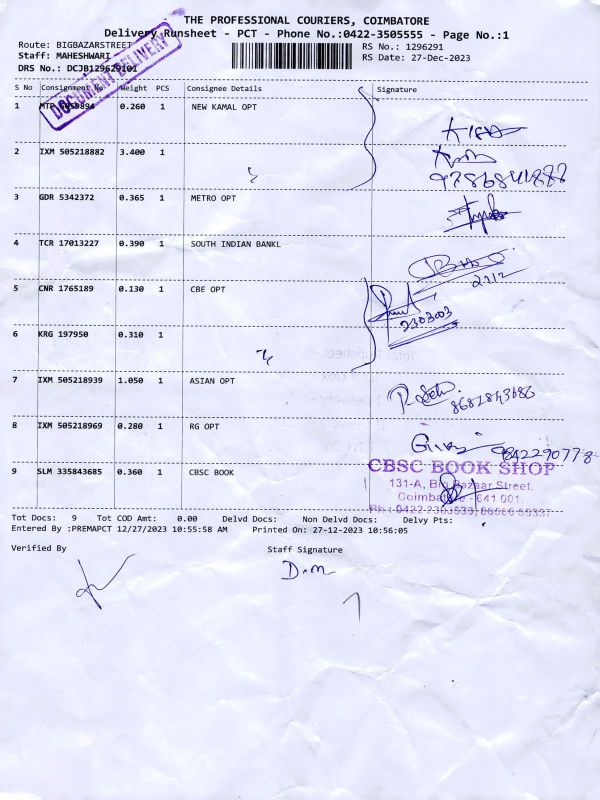 THE PROFESSIONAL COURIERS, COIMBATORE
Delivery Runsheet - PCT - Phone No.:0422-3505555 - Page No.:1
Route: BIGBAZARSTREET RS No.: 1296291
Staff: MAHESHWARI RS Date: 27-Dec-2023
DRS No.: DCJB129629101
DOCUMENT DELIVERY
S No Consignment No. Weight PCS Consignee Details Signature
1 0.260 1 NEW KAMAL OPT
2 IXM 505218882 3.400 1
9786841882
3 GDR 5342372 0.365 1 METRO OPT
4 TCR 17013227 0.390 1 SOUTH INDIAN BANKL
5 CNR 1765189 0.130 1 CBE OPT
2303003
6 KRG 197950 0.310 1
7 IXM 505218939 1.050 1 ASIAN OPT
8 IXM 505218969 0.280 1 RG OPT
9842290778
9 SLM 335843685 0.360 1 CBSC BOOK
CBSC BOOK SHOP
131-A, Big Bazaar Street,
Coimbatore - 641 001.
Tot Docs: 9 Tot COD Amt: 0.00 Delvd Docs: Non Delvd Docs: Delvy Pts:
Entered By :PREMAPCT 12/27/2023 10:55:58 AM Printed On: 27-12-2023 10:56:05
Verified By Staff Signature
D.m